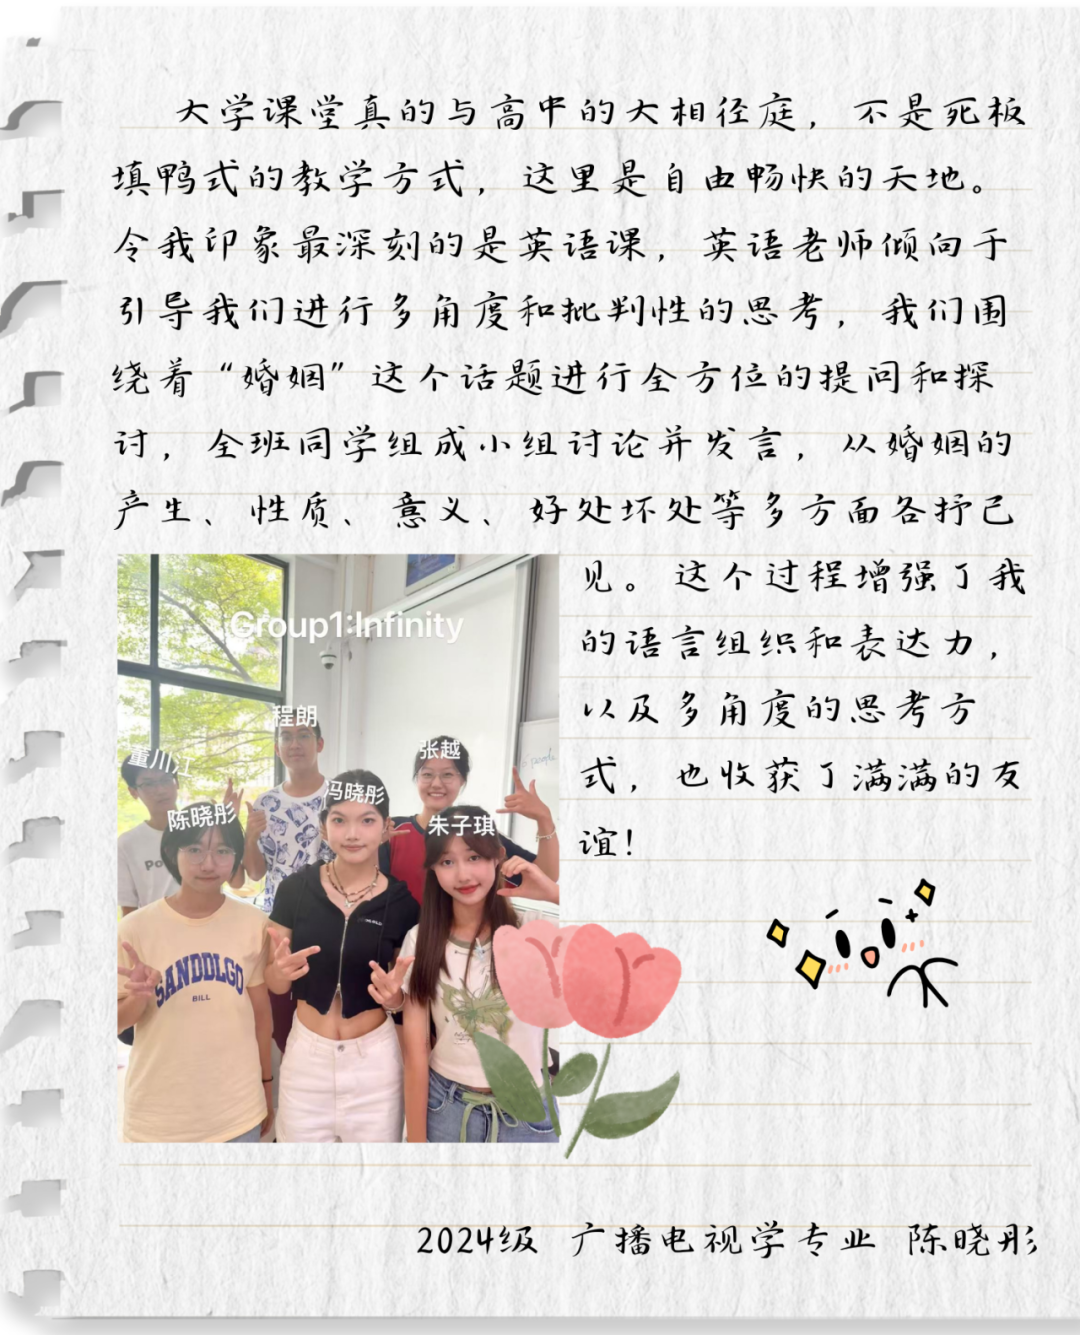 大学课堂真的与高中的大相径庭，不是死板
填鸭式的教学方式，这里是自由畅快的天地。
令我印象最深刻的是英语课，英语老师倾向于
引导我们进行多角度和批判性的思考，我们围
绕着“婚姻”这个话题进行全方位的提问和探
讨，全班同学组成小组讨论并发言，从婚姻的
产生、性质、意义、好处坏处等多方面各抒己
见。这个过程增强了我
的语言组织和表达力，
以及多角度的思考方
式，也收获了满满的友
谊！
Group1:Infinity
程朗
董川江
张越
陈晓彤
冯晓彤
朱子琪
people
SANDDLGO
BILL
2024级 广播电视学专业 陈晓彤